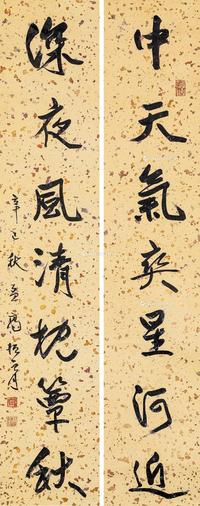 中天氣爽星河近
深夜風清枕簟秋
辛巳秋